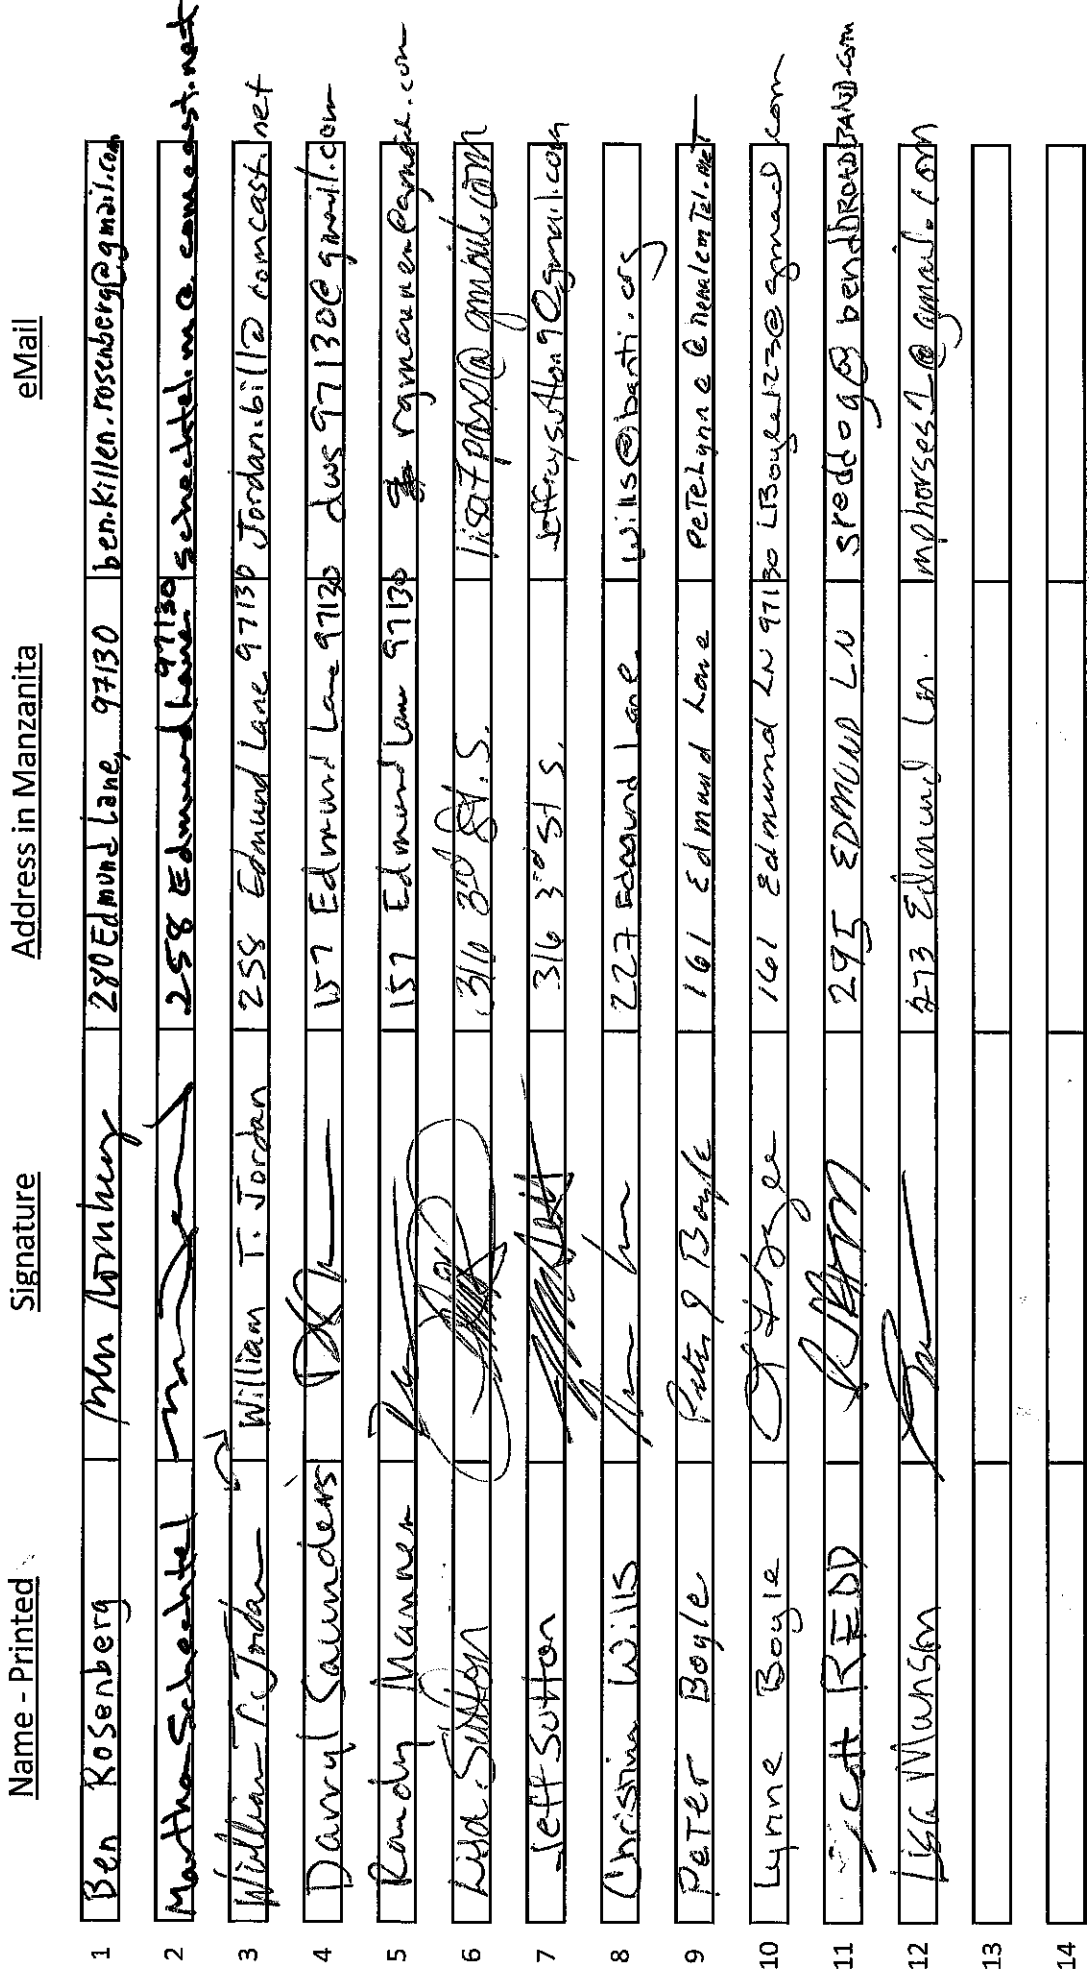 Name - Printed Signature Address in Manzanita eMail
1 Ben Rosenberg 280 Edmund Lane, 97130 ben.killen.rosenberg@gmail.com
2 Martha Schechtel 258 Edmund Lane 97130 schechtel.m@comcast.net
3 William T. Jordan William T. Jordan 258 Edmund Lane 97130 Jordan.bill@comcast.net
4 Darryl Saunders 157 Edmund Lane 97130 dws97130@gmail.com
5 Randy Mannen 157 Edmund Lane 97130 rgmannen@gmail.com
6 Lisa Sutton 316 3rd St. S. lisa7pdx@gmail.com
7 Jeff Sutton 316 3rd St S. jeffreysutton9@gmail.com
8 Christina Wills 227 Edmund Lane wills@banti.org
9 PeTer Boyle Peter J Boyle 161 Edmund Lane PeTeLynne@nehalemTel.neT
10 Lynne Boyle 161 Edmund LN 97130 LBoyle123@gmail.com
11 Scott REDD 295 EDMUND LN sreddog@bendBROADBAND.com
12 Lisa Munson 273 Edmund Ln. mphorses1@gmail.com
13
14